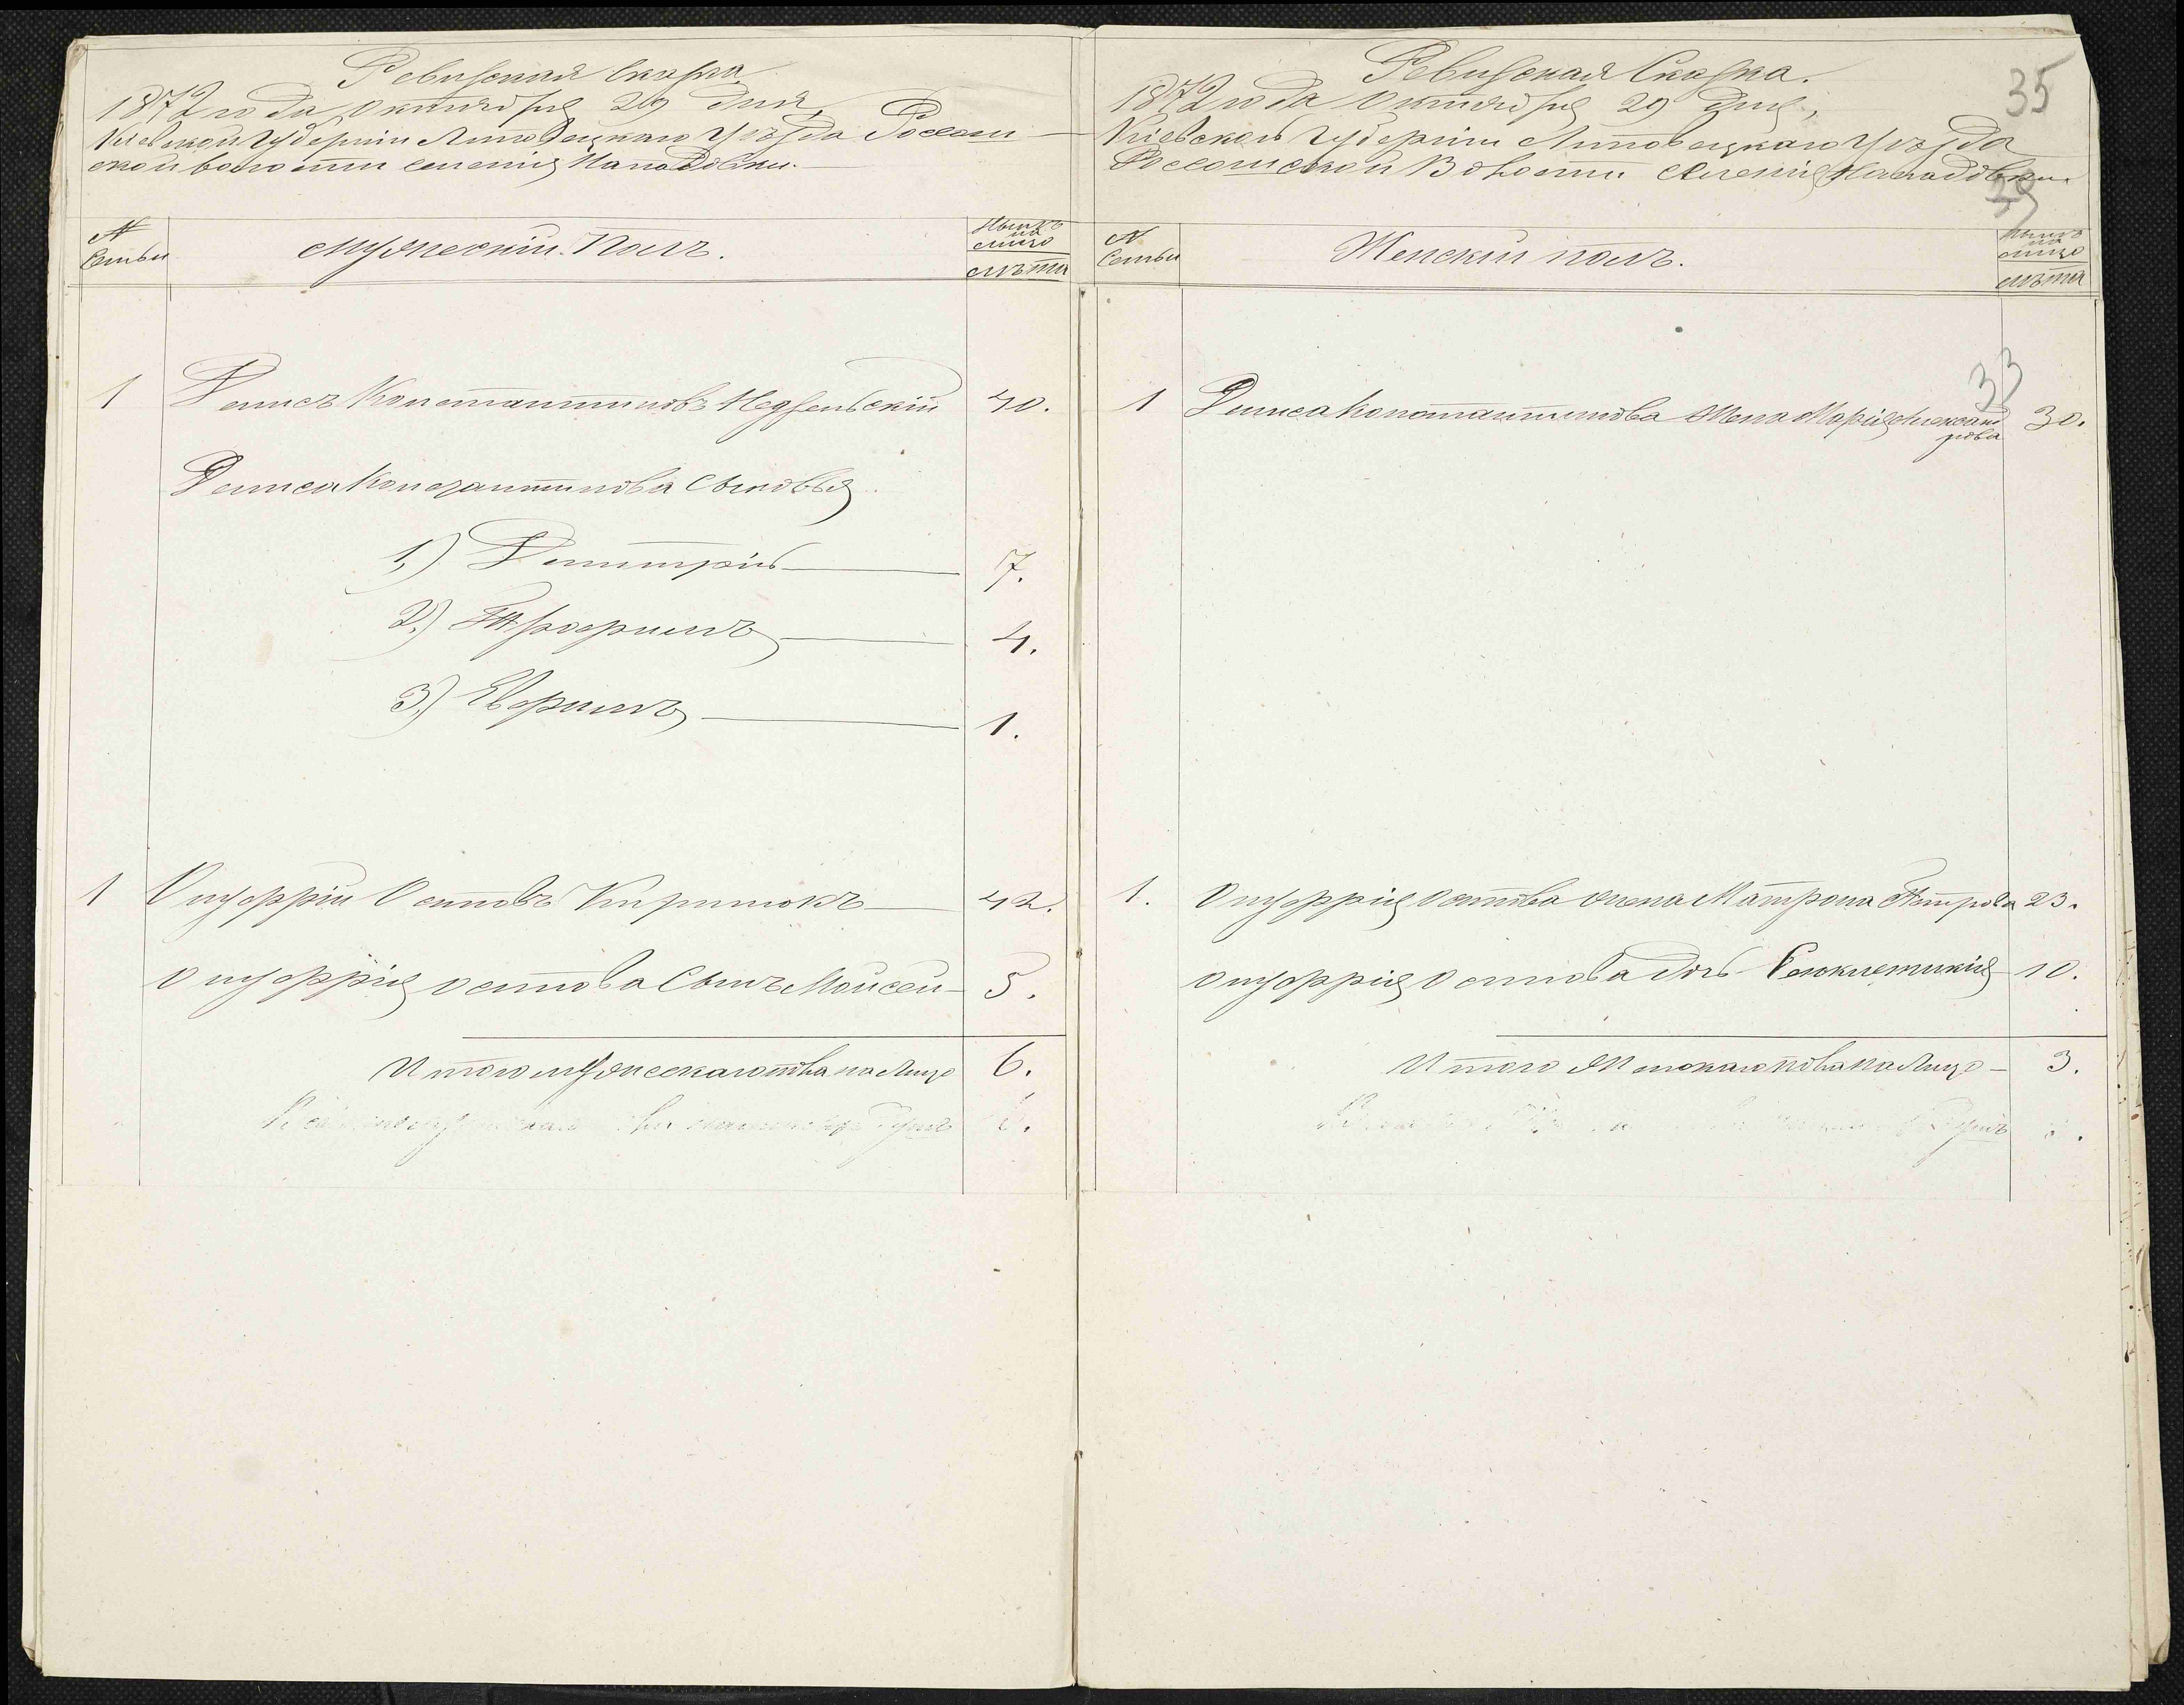 Ревизская Сказка
1872 года Октября 29 дня,
Кіевской Губерніи Липовецкаго Уѣзда Россош
ской волости селенія Нападовки.
№
Семьи
Мужескій Полъ.
Нынѣ
на
лицо
Лѣта
1
Денисъ Константиновъ Недзельскій
40.
Дениса Константинова Сыновья
1.) Дмитрій
7.
2.) Трофимъ
4.
3.) Ефимъ
1.
1
Онуфрій Осиповъ Кириллюкъ
42.
Онуфрія Осипова Сынъ Моисей
5.
Итого мужескаго пола на Лицо
6.
душъ
6.
35
Ревизская Сказка.
1872 года Октября 29 дня,
Кіевской Губерніи Липовецкаго Уѣзда
Россошской Волости Селенія Нападовки.
39
№
Семьи
Женскій полъ.
Нынѣ
на
лицо
Лѣта
33
1
Дениса Константинова Жена Марія Александ
рова
30.
1.
Онуфрія Осипова жена Матрона Петрова
23.
Онуфрія Осипова дочь Синклитикія
10.
Итого Женскаго пола на Лицо
3.
душъ